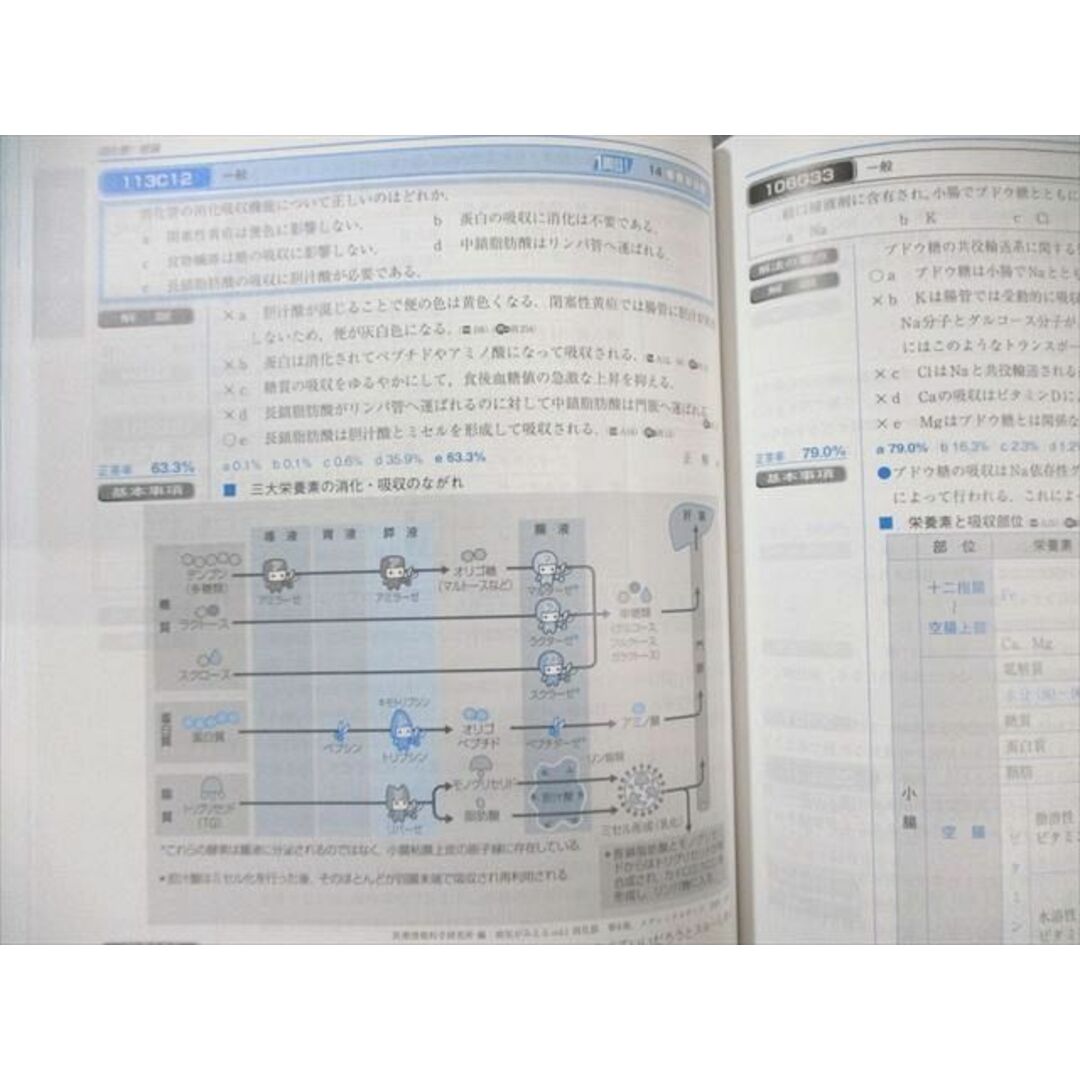 113C12 一般
消化管の消化吸収機能について正しいのはどれか.
a 閉塞性黄疸は便色に影響しない.
b 蛋白の吸収に消化は不要である.
c 食物繊維は糖の吸収に影響しない.
d 中鎖脂肪酸はリンパ管へ運ばれる.
e 長鎖脂肪酸の吸収に胆汁酸が必要である.
解説
×a 胆汁酸が混じることで便の色は黄色くなる. 閉塞性黄疸では腸管に胆汁が
しないため, 便が灰白色になる.
×b 蛋白は消化されてペプチドやアミノ酸になって吸収される.
×c 糖質の吸収をゆるやかにして, 食後血糖値の急激な上昇を抑える.
×d 長鎖脂肪酸がリンパ管へ運ばれるのに対して中鎖脂肪酸は門脈へ運ばれる.
○e 長鎖脂肪酸は胆汁酸とミセルを形成して吸収される.
正答率 63.3%
a 0.1% b 0.1% c 0.6% d 35.9% e 63.3%
正解 e
基本事項
■ 三大栄養素の消化・吸収のながれ
唾液 胃液 膵液 腸液
肝臓
糖質
デンプン
(多糖類)
アミラーゼ
アミラーゼ
オリゴ糖
(マルトースなど)
マルターゼ*
ラクトース
ラクターゼ*
単糖類
(グルコース,
フルクトース,
ガラクトース)
スクロース
スクラーゼ*
門脈
蛋白質
蛋白質
ペプシン
キモトリプシン
トリプシン
オリゴ
ペプチド
ペプチダーゼ*
アミノ酸
脂質
トリグリセリド
(TG)
リパーゼ
モノグリセリド
脂肪酸
胆汁酸
ミセル形成(乳化)
*これらの酵素は腸液に分泌されるのではなく, 小腸粘膜上皮の刷子縁に存在している.
●胆汁酸はミセル化を行った後, そのほとんどが回腸末端で吸収され再利用される
●長鎖脂肪酸とモノグリセリ
ドからはトリグリセリドが再
合成され, カイロミクロンを
形成し, リンパ管に入る.
106G33 一般
経口補液剤に含有され, 小腸でブドウ糖とともに
a Na b K c Cl
解法の要点
ブドウ糖の共役輸送系に関する
解説
○a ブドウ糖は小腸でNaととも
×b Kは腸管では受動的に吸収
Na分子とグルコース分子が
にはこのようなトランスポー
×c ClはNaと共役輸送される
×d Caの吸収はビタミンDに
×e Mgはブドウ糖とは関係な
正答率 79.0%
a 79.0% b 16.3% c 2.3% d 1.2%
基本事項
●ブドウ糖の吸収はNa依存性グ
によって行われる. これによ
■ 栄養素と吸収部位
部位 栄養素
十二指腸
~
空腸上部
Fe
Ca, Mg
電解質
糖質
蛋白質
脂肪
小腸
空腸
ビタミン
脂溶性
ビタミ
水溶性
ビタミ